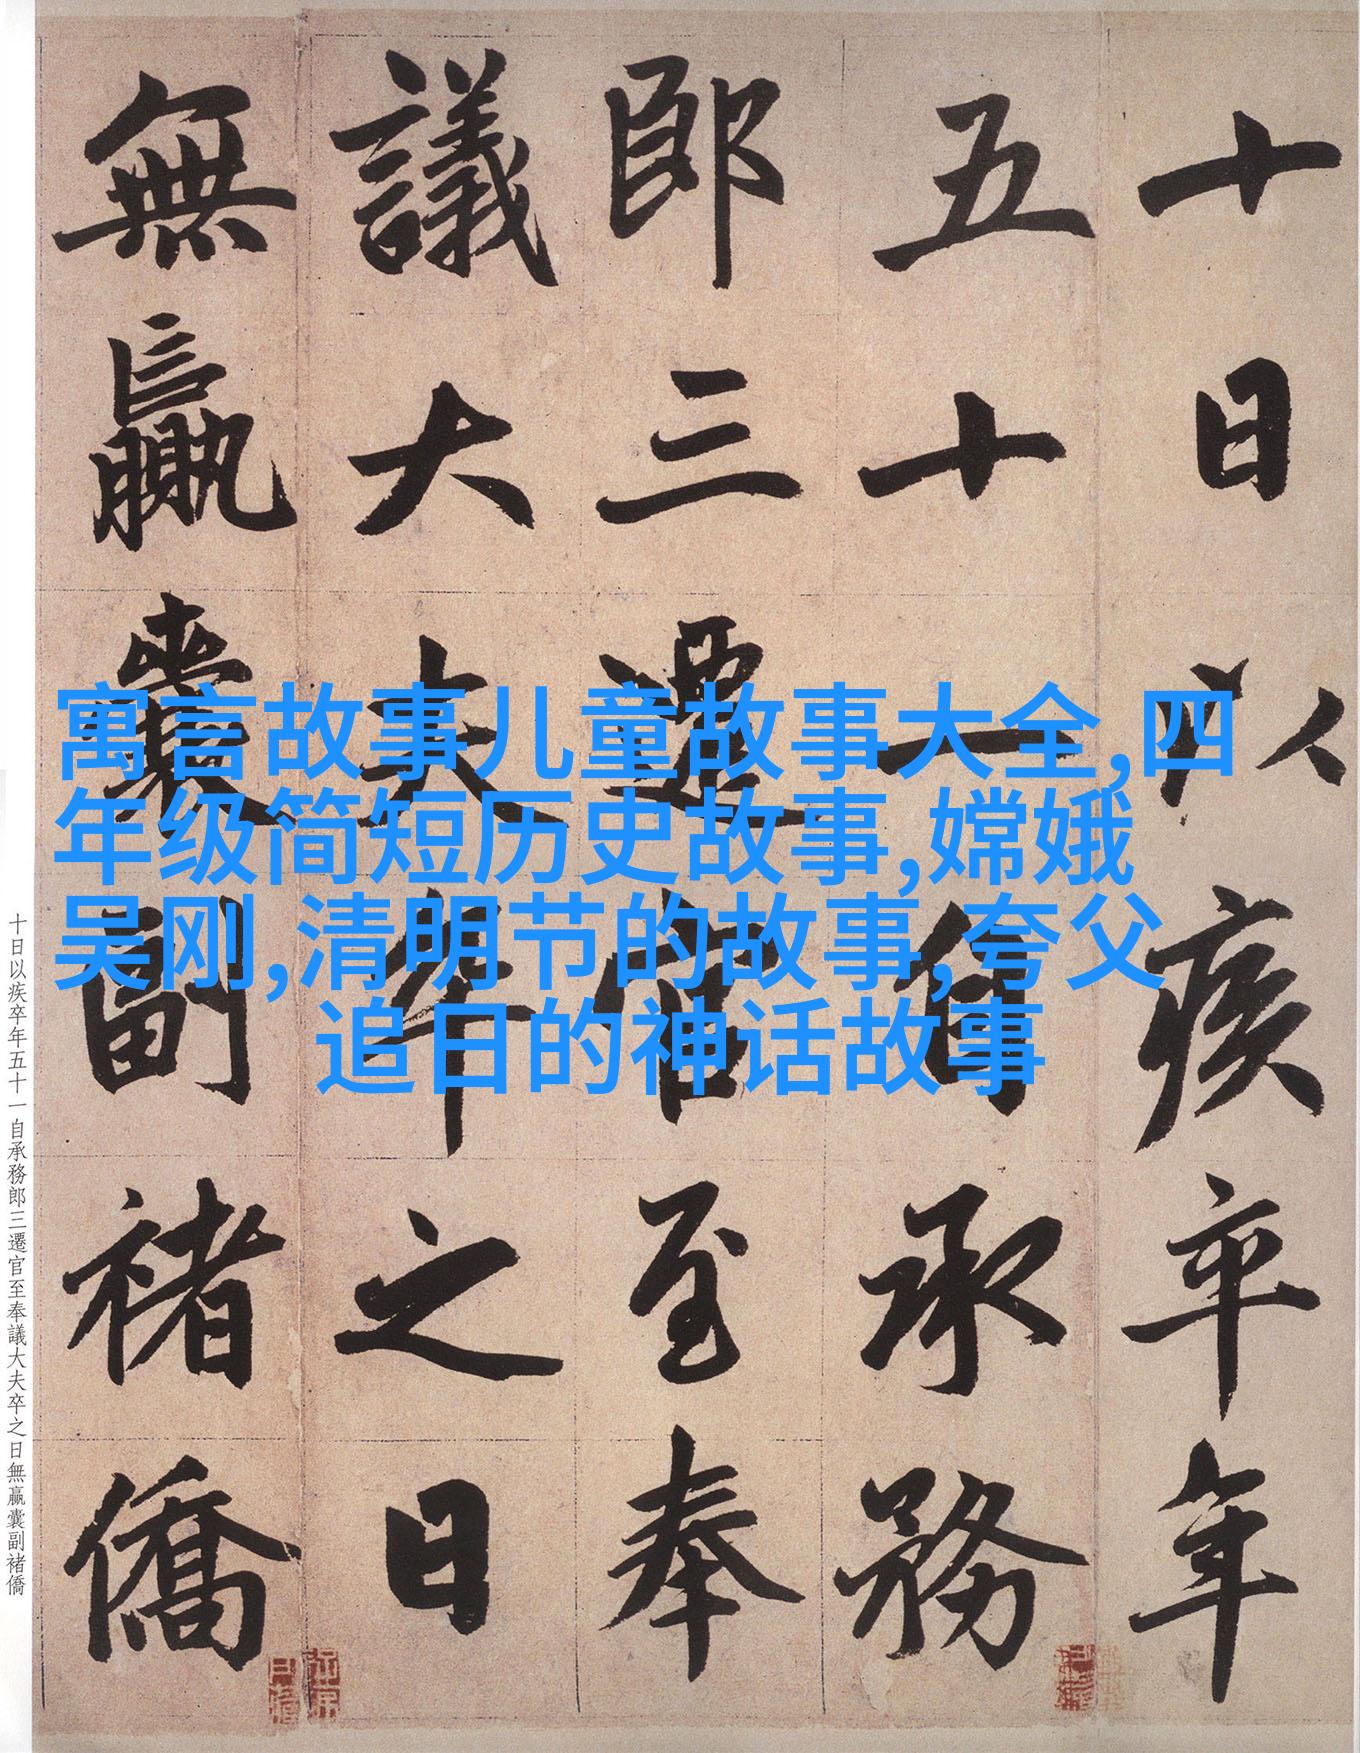 寓言故事儿童故事大全,四
年级简短历史故事,嫦娥
吴刚,清明节的故事,夸父
追日的神话故事
十日以疾卒年
五十一自承務
郎三遷官至奉
議大夫卒之日
無贏囊副褚僑
十日以疾卒年五十一自承務郎三遷官至奉議大夫卒之日無贏囊副褚僑